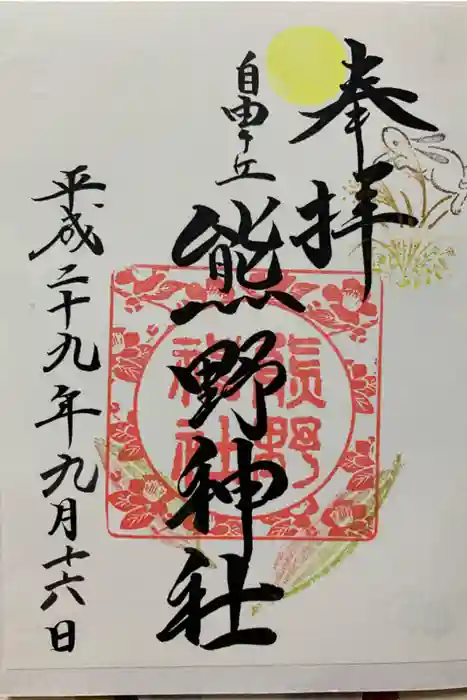 奉拝
自由ヶ丘
熊野神社
熊野
神社
平成二十九年九月十六日